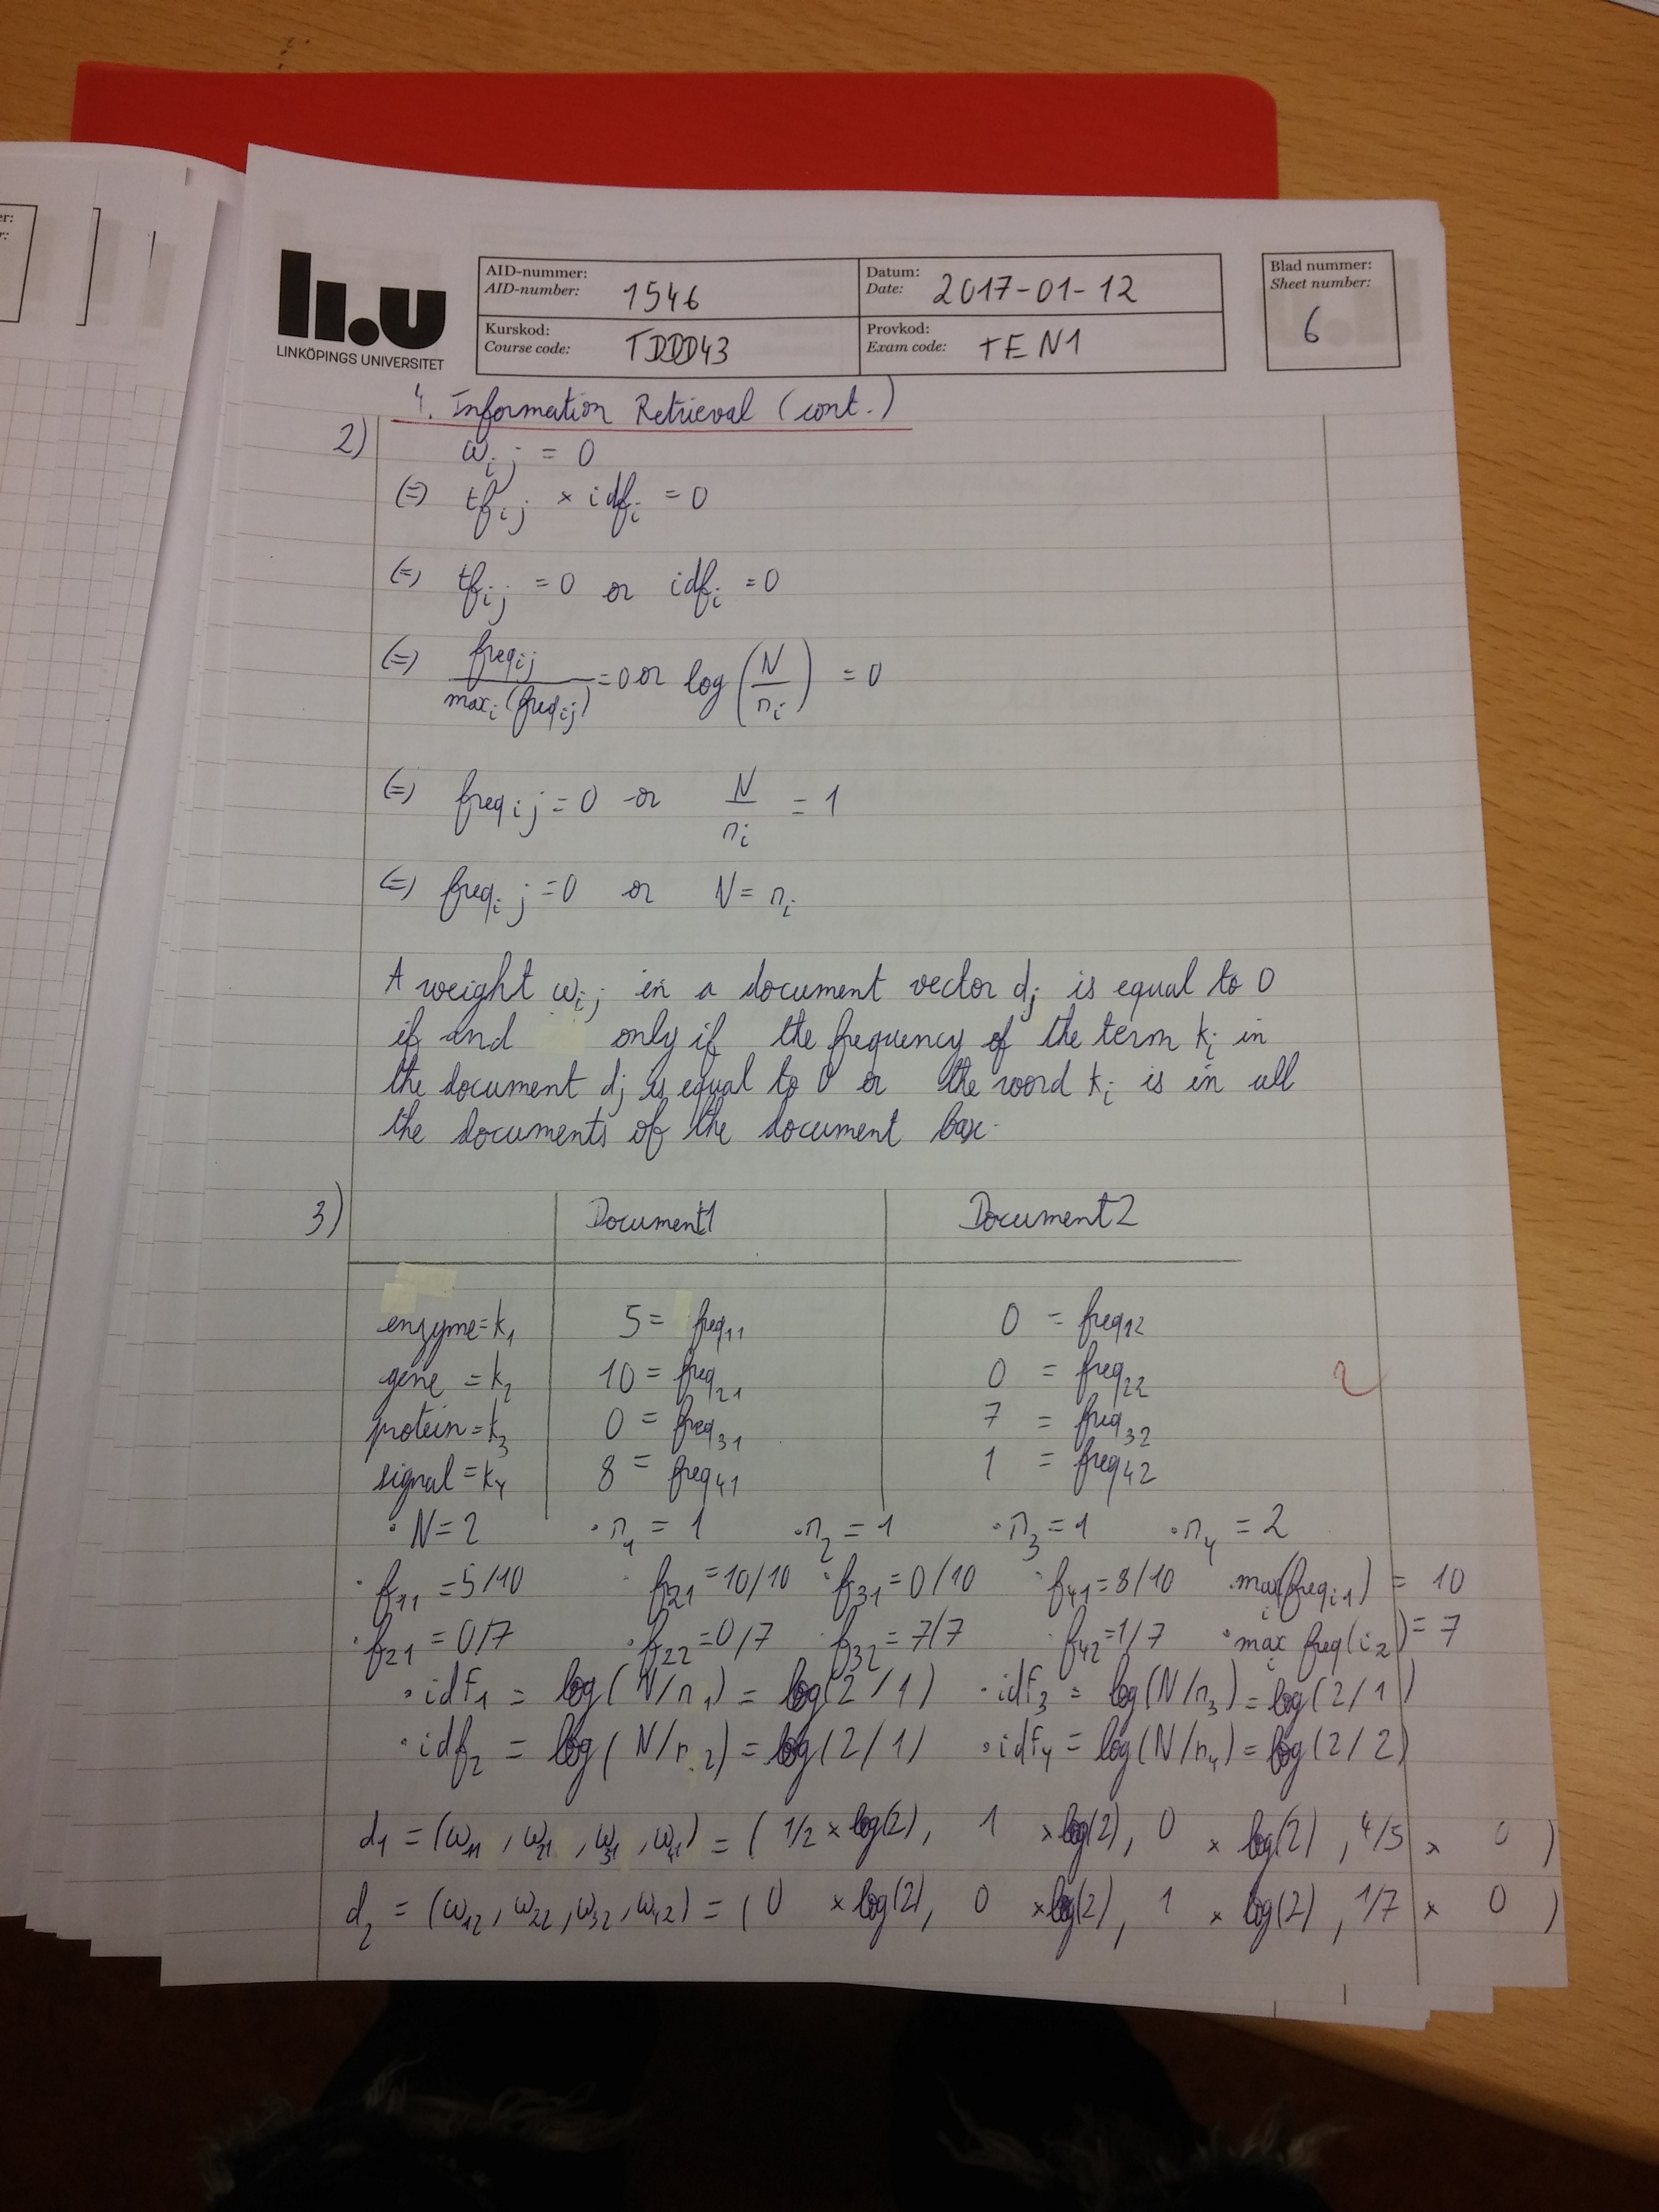 er:
r:
li.u
LINKÖPINGS UNIVERSITET
AID-nummer:
AID-number: 1546
Datum:
Date: 2017-01-12
Blad nummer:
Sheet number:
6
Kurskod:
Course code: TDDD43
Provkod:
Exam code: TEN1
4. Information Retrieval (cont.)
2) w_ij = 0
(=) tf_ij × idf_i = 0
(=) tf_ij = 0 or idf_i = 0
(=) freq_ij / max_i (freq_ij) = 0 or log (N / n_i) = 0
(=) freq_ij = 0 or N / n_i = 1
(=) freq_ij = 0 or N = n_i
A weight w_ij in a document vector d_j is equal to 0
if and only if the frequency of the term k_i in
the document d_j is equal to 0 or the word k_i is in all
the documents of the document base.
3) Document1 Document2
enzyme = k_1 5 = freq_11 0 = freq_12
gene = k_2 10 = freq_21 0 = freq_22
2
protein = k_3 0 = freq_31 7 = freq_32
signal = k_4 8 = freq_41 1 = freq_42
· N = 2 · n_1 = 1 · n_2 = 1 · n_3 = 1 · n_4 = 2
· f_11 = 5/10 · f_21 = 10/10 · f_31 = 0/10 · f_41 = 8/10 · max_i (freq_i1) = 10
· f_21 = 0/7 · f_22 = 0/7 f_32 = 7/7 · f_42 = 1/7 · max_i freq(i2) = 7
· idf_1 = log(N/n_1) = log(2/1) · idf_3 = log(N/n_3) = log(2/1)
· idf_2 = log(N/n_2) = log(2/1) · idf_4 = log(N/n_4) = log(2/2)
d_1 = (w_11, w_21, w_31, w_41) = (1/2 × log(2), 1 × log(2), 0 × log(2), 4/5 × 0)
d_2 = (w_12, w_22, w_32, w_42) = (0 × log(2), 0 × log(2), 1 × log(2), 1/7 × 0)